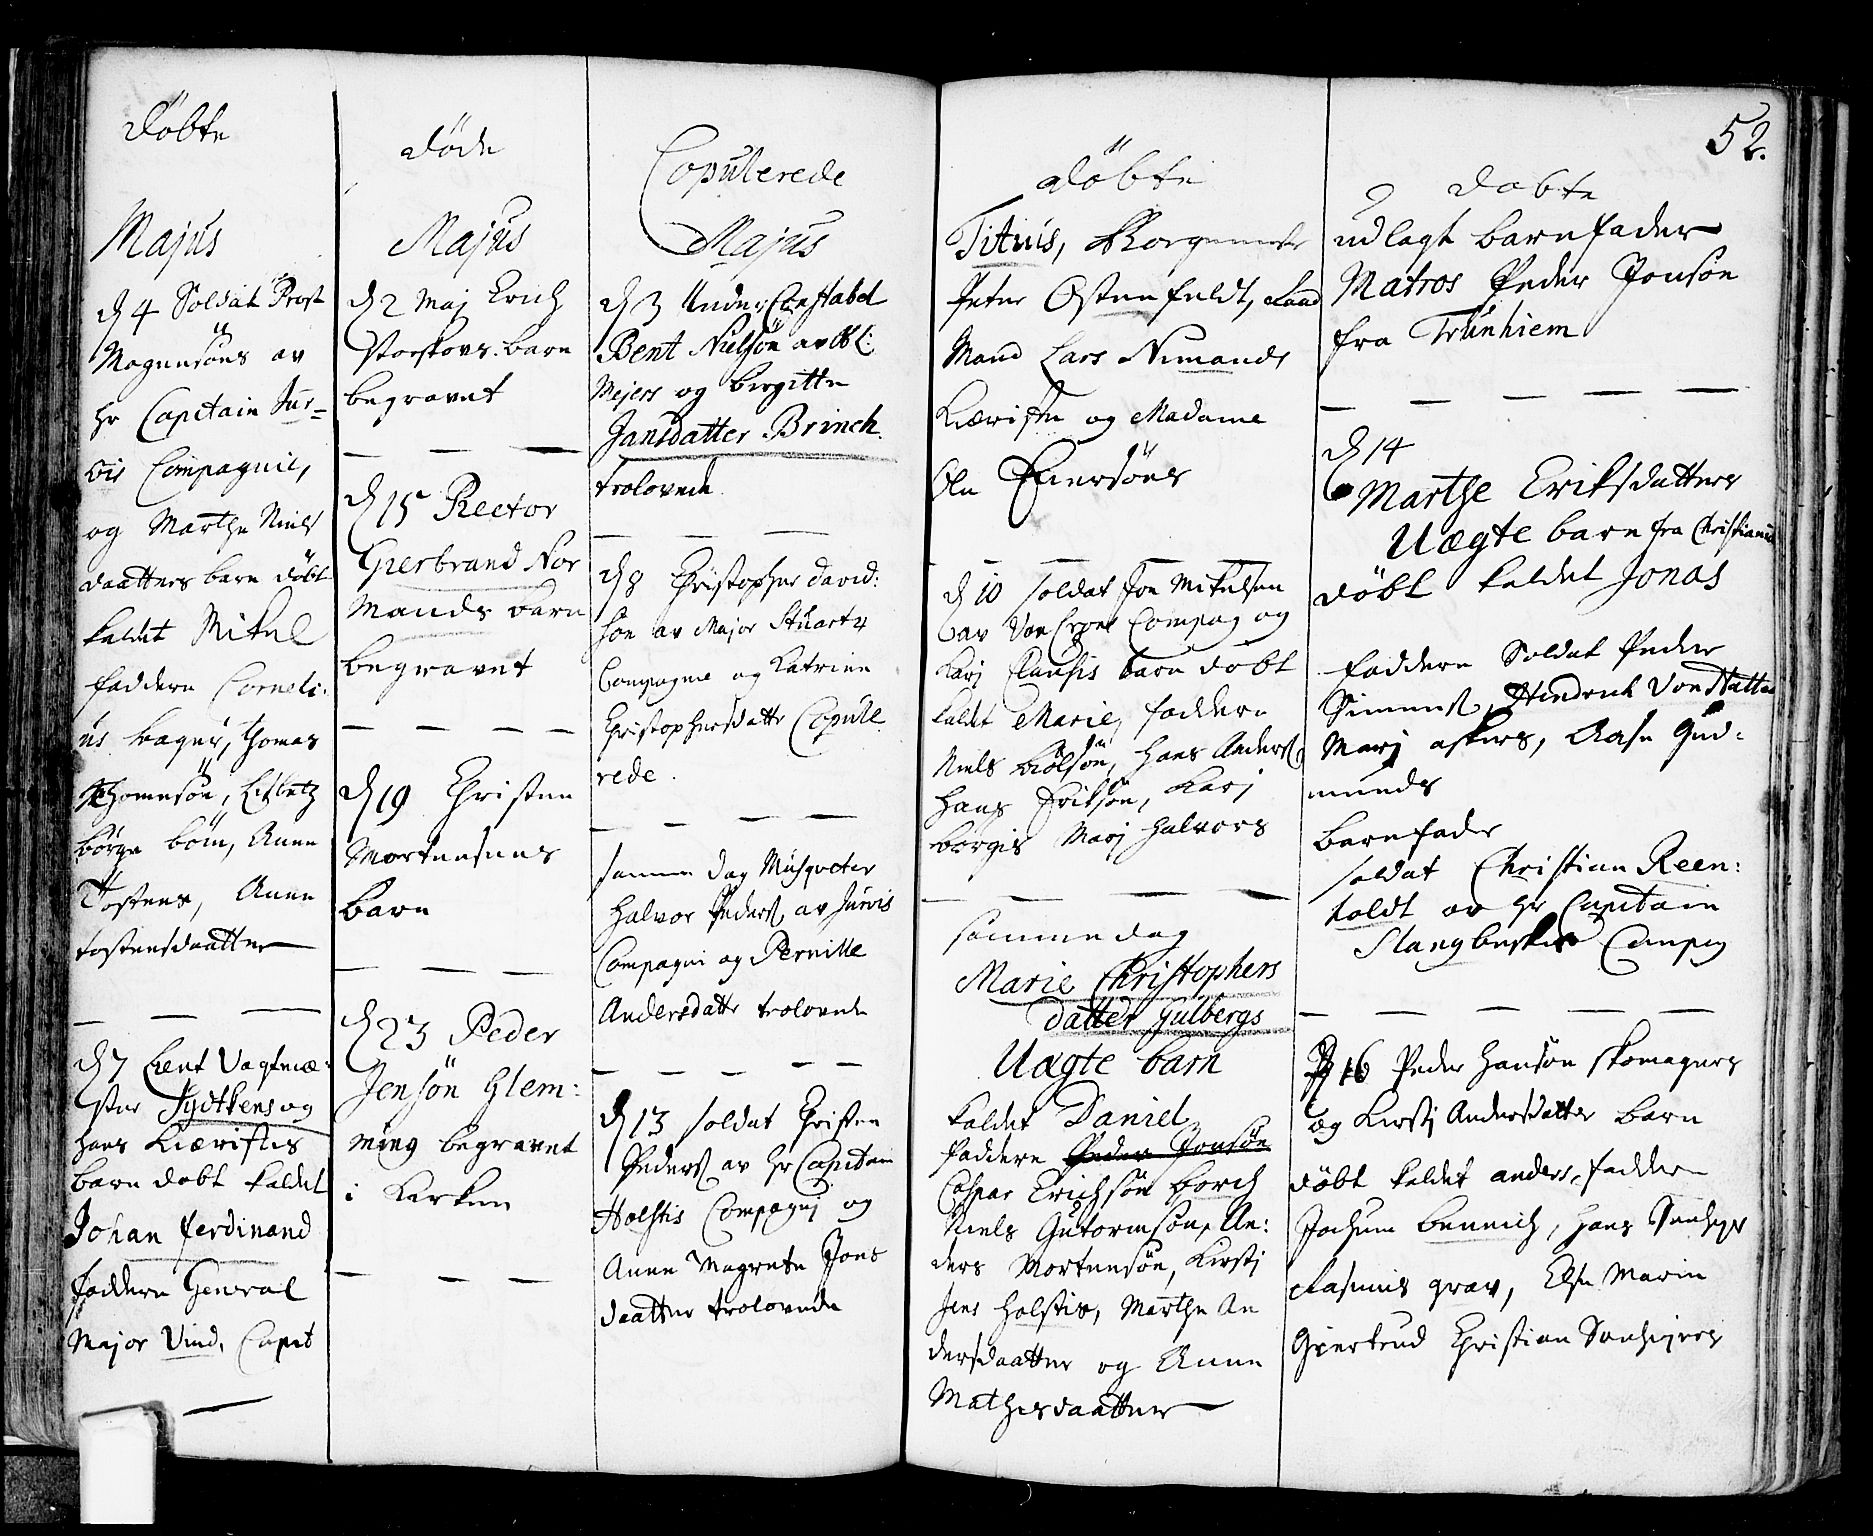 Döbte
Majus
d 4 Soldat Prost
Mogensöns av
hr Capitain Jur-
vis Compagnie,
og Marthe Niels
daatters barn döbt
kaldet Mikel
faddere Corneli:
us bager, Thomas
Thomesön, Lisbetz
börge born, Anne
Tostens, Anne
tostensdaatter
d 7 Lieut Vagtmæ:
ster Lydtkens og
hans Kieristis
barn döbt kaldet
Johan ferdinand
faddere General
Major Vind, Capit
Döde
Majus
d 2 Maj Erich
Storskovs barn
begravet
d 15 Rector
Gierbrand Nor
mands barn
begravet
d 19 Christen
Mortensens
barn
d 23 Peder
Jensön Glem:
ming begravet
i Kirken
Copulerede
Majus
d 3 Under Constabel
Bent Nielsön av Ob:
Mejers og birgitte
Jansdatter Brinch
trolovede
d 8 Christopher David:
sön av Major Stuartz
Compagnie og Katrine
Christophersdatter Copule
rede.
samme dag Musqveter
Halvor Peders av Jurvis
Compagni og Pernille
Andersdatter trolovede
d 13 soldat Christen
Peders av hr Capitain
Holstis Compagnj og
Anne Magrete Jons
daatter trolovede
Döbte
Titus, Borgemester
Peter Ostenfeldt, Raad
Mand Lars Nimands
Kieriste og Madame
Ole Einersöns
d 10 soldat Jon Mikelsen
av Von Crone Compag og
Karj Clausis barn döbt
kaldet Marie, faddere
Niels Kiölsön, Hans Anders
Hans Eriksön, Karj
börgis Marj halvors
samme dag
Marie Christophers
datter Gulbergs
Uægte barn
kaldet Daniel
faddere Peder Jonsön
Caspar Erichsön borch
Niels Gutormsön, An:
ders Mortensön, Kirstj
Jens Holstis, Marthe An
dersdaatter og Anne
Mathisdaatter
52.
Döbte
udlagt barnefader
Matros Peder Jonsön
fra Trunhiem
d 14
Marthe Eriksdatters
Uægte barn fra Christiania
döbt kaldet Jonas
faddere Soldat Peder
Simens, Hendrich Von Hatten
Marj askers, Aase Gud:
munds
barnefader
soldat Christian Reen:
toldt av hr Capitain
Slangbuskis Compag
d 16 Peder Hansön skomagers
og Kirstj Andersdatter barn
döbt kaldet anders, faddere
Jochum bennich, Hans
Rasmus grav, Else Marie
Giertrud Christian